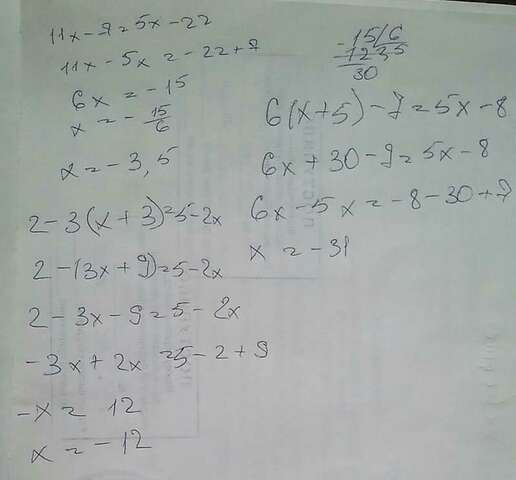 11x - 7 = 5x - 22
11x - 5x = - 22 + 7
6x = - 15
x = - 15/6
x = - 3,5
2 - 3(x + 3) = 5 - 2x
2 - (3x + 9) = 5 - 2x
2 - 3x - 9 = 5 - 2x
- 3x + 2x = 5 - 2 + 9
- x = 12
x = - 12
- 15/6
12 35
30
6(x + 5) - 7 = 5x - 8
6x + 30 - 7 = 5x - 8
6x - 5x = - 8 - 30 + 7
x = - 31